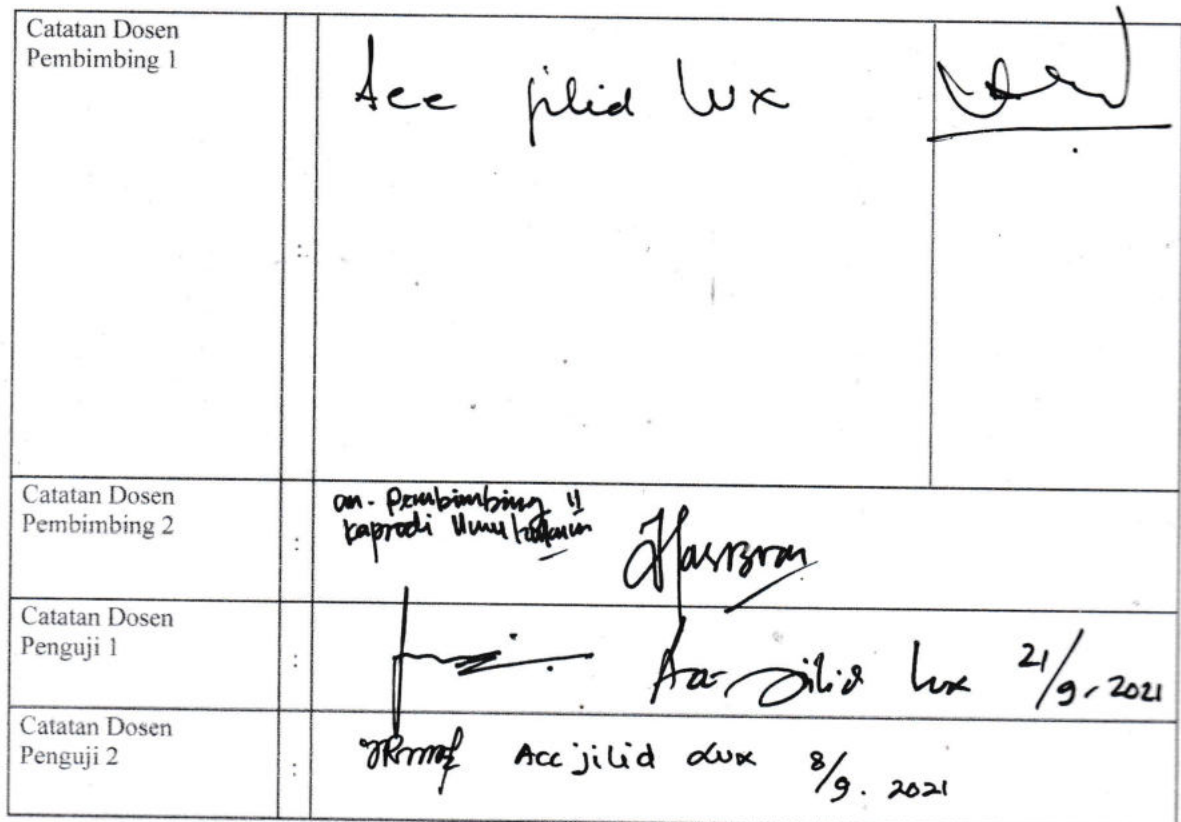 Catatan Dosen
Pembimbing 1
:
Acc jilid lux
Catatan Dosen
Pembimbing 2
:
an. Pembimbing II
kaprodi Ilmu
Catatan Dosen
Penguji 1
:
Acc jilid lux 21/9. 2021
Catatan Dosen
Penguji 2
:
Acc jilid Lux 8/9. 2021